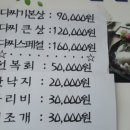 다찌기본상 : 90,000원
다찌큰상 : 120,000원
다찌스페셜 : 160,000원
모듬회 : 50,000원
산낙지 : 20,000원
가리비 : 30,000원
키조개 : 30,000원